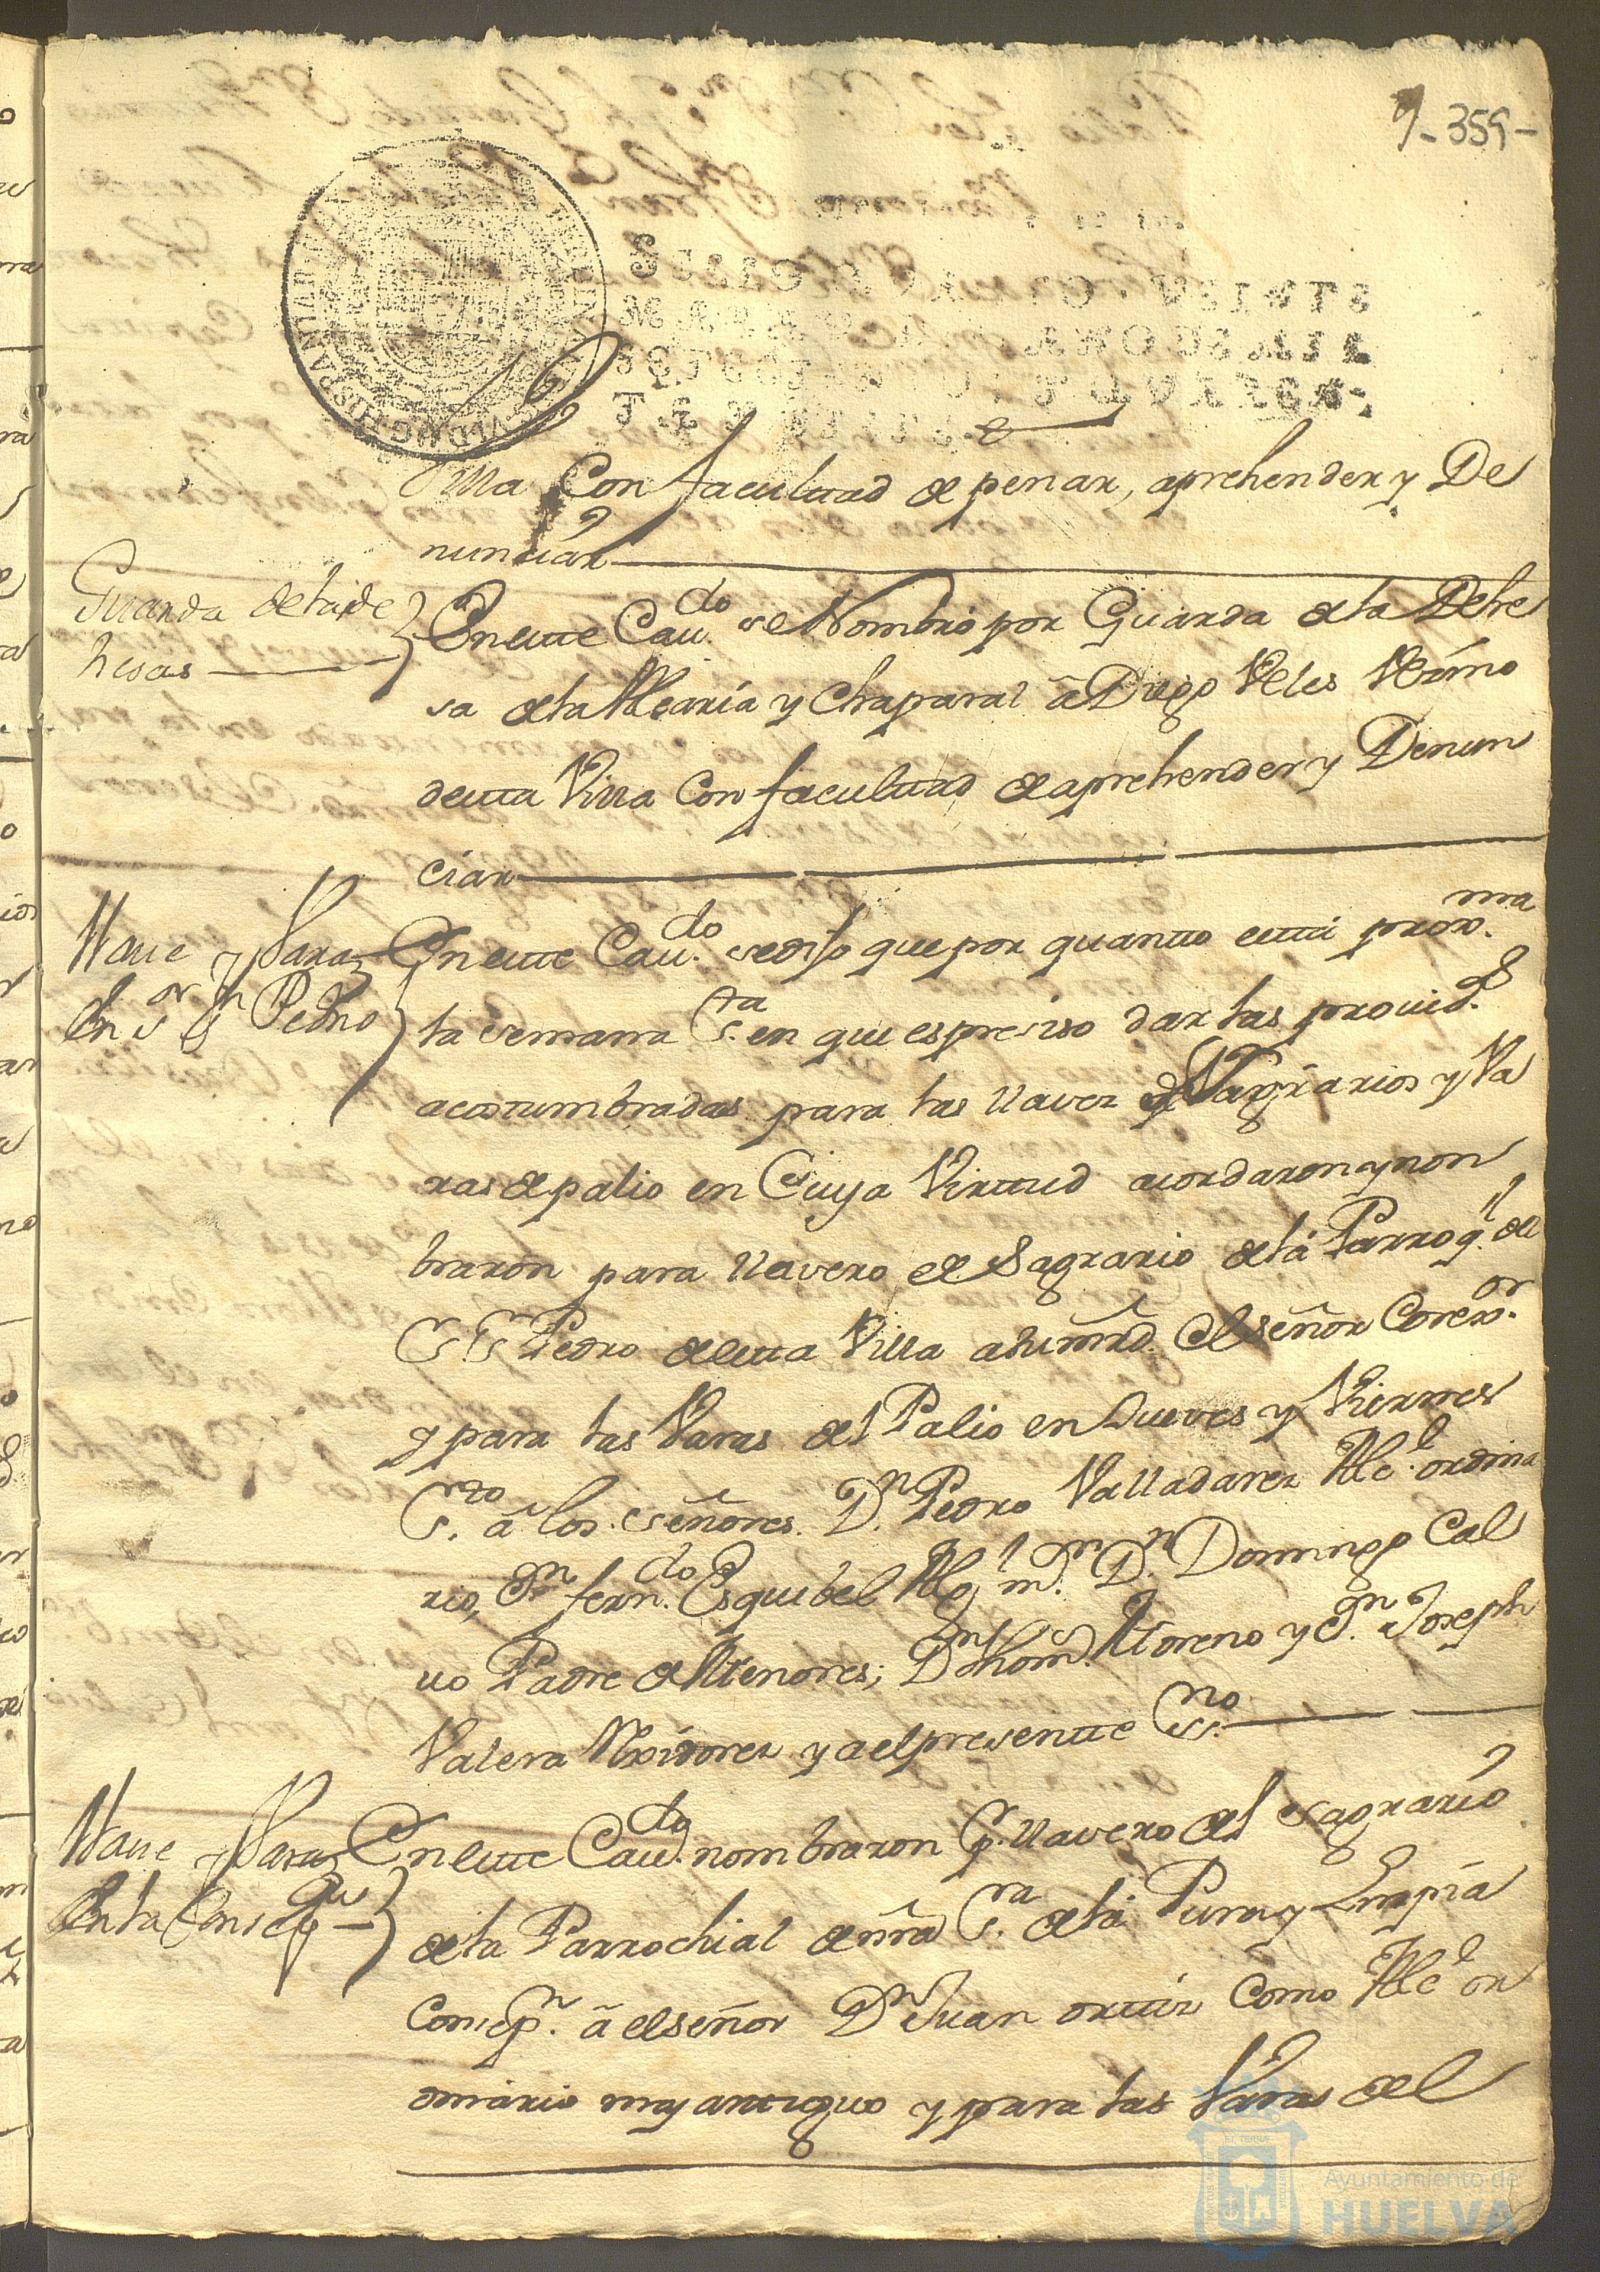 9- 359-
Villa Con facultad de penar, aprehender y De
nunciar
Guarda de la de
hesas
En este Cau.do se Nombró por Guarda de la Dehe
sa de la Alcaria y Chaparal â Diego Veles Vezino
desta Villa Con facultad de aprehender y Denun
ciar
Llave y Varas
En s.or S.n Pedro
En este Cau.do se dijo que por quanto está prox.ma
la semana S.ta en que es presiso dar las provid.s
acostumbradas para las llaves de Sagrarios y Va
ras de palio en Cuya Virtud acordaron y non
braron para llavero de Sagrario de la Parroq.l del
S.r S.n Pedro de esta Villa a su mrd. el señor Corex.or
y para las Varas del Palio en Jueves y Viernes
S.to â los señores D.n Pedro Valladares Alc.e ordina
rio, D.n fern.do Esquibel Alg.l m.r D.n Domingo Cal
vo Padre de Menores; D.n thom.s Moreno y D.n Joseph
Valera Rexidores y a el presente Ess.no
Llave y Varas
En la Consep.on
En este Cau.do nombraron p.r llavero del sagrario
de la Parrochial de nra S.ra de la Pura y Limpia
Consep.n â el señor D.n Juan ortiz Como Alc.e or
dinario mas antiguo y para las Varas del
Ayuntamiento de
HUELVA